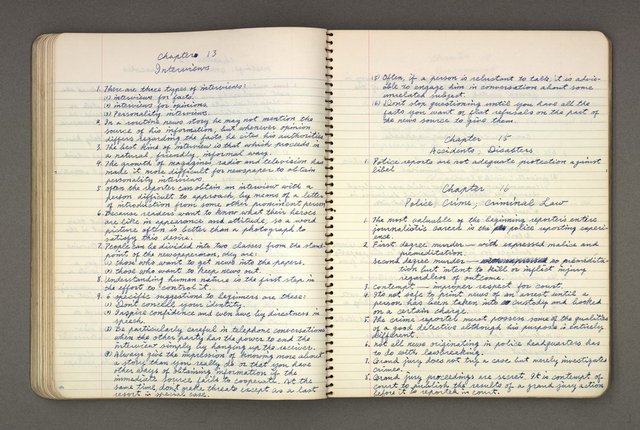 Chapter 13
Interviews
1. There are three types of interviews:
(1) interviews for facts.
(2) interviews for opinions.
(3) Personality interviews.
2. In a routine news story he may not mention the
source of his information, but whenever opinion
differs regarding the facts he cites his authorities
3. The best kind of interview is that which proceeds in
a natural, friendly, informal way.
4. The growth of magazines, radio and television has
made it more difficult for newspaper to obtain
personality interviews.
5. Often the reporter can obtain an interview with a
person difficult to approach, by means of a letter
of introduction from some other prominent person
6. Because readers want to know what their heroes
are like in appearance and attitude, so a word
picture often is better than a photograph to
satisfy this desire.
7. People can be divided into two classes from the stand-
point of the newspapermen, they are:
(1) those who want to get news into the papers,
(2) those who want to keep news out.
8. Understanding human nature is the first step in
the effort to control it.
9. 6 specific suggestions to beginners are these:
(1) Don't conceal your identity.
(2) Inspire confidence and even have by directness in
speech.
(3) Be particularly careful in telephone conversations
when the other party has the power to end the
interview simply by hanging up the receiver.
(4) Always give the impression of knowing more about
a story than you really do or that you have
other ways of obtaining information if the
immediate source fails to cooperate. At the
same time, don't make threats except as a last
resort in special case.
(5) Often, if a person is reluctant to talk, it is advis-
able to engage him in conversation about some
unrelated subject.
(6) Don't stop questioning until you have all the
facts you want or flat refusals on the part of
the news source to give them.
Chapter 15
Accidents, Disasters
1. Police reports are not adequate protection against
libel
Chapter 16
Police, Crime, Criminal Law
1. The most valuable of the beginning reporters entire
journalistic career is the police reporting experi-
ence.
2. First degree murder - with expressed malice and
premeditation.
Second degree murder - no premedita-
tion but intent to kill or inflict injury
regardless of outcome.
3. Contempt - improper respect for court.
4. Its not safe to print news of an arrest until a
person has been taken into custody and booked
on a certain charge.
5. The crime reporter must possess some of the qualities
of a good detective although his purpose is entirely
different.
6. Not all news originating in police headquarters has
to do with lawbreaking.
7. Grand jury does not try a case, but merely investigates
crimes.
8. Grand jury proceedings are secret. It is contempt of
court to publish the results of a grand jury action
before it is reported in court.